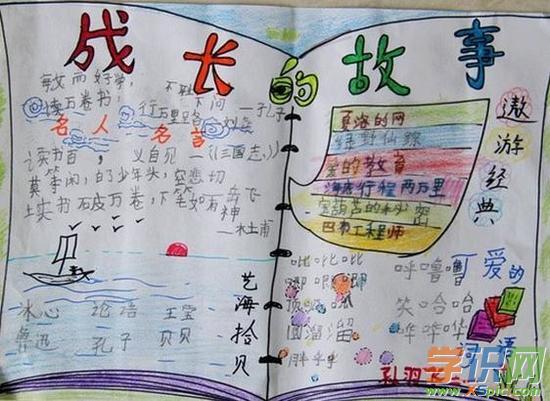 成长的故事
敏而好学，不耻下问 —孔子
读万卷书，行万里路 刘彝
名人名言
读书百遍，义自见 —《三国志》
莫等闲，白了少年头，空悲切
—岳飞
读书破万卷，下笔如有神
—杜甫
艺海拾贝
冰心 论语 王莹
鲁迅 孔子 贝贝
遨游经典
夏洛的网
绿野仙踪
爱的教育
海底行程两万里
宝葫芦的秘密
四季工程师
可爱的词语
叽叽叽 呼噜噜
唧唧唧
笑哈哈
圆溜溜 哗哗哗
胖乎乎
学识网
www.xspic.com